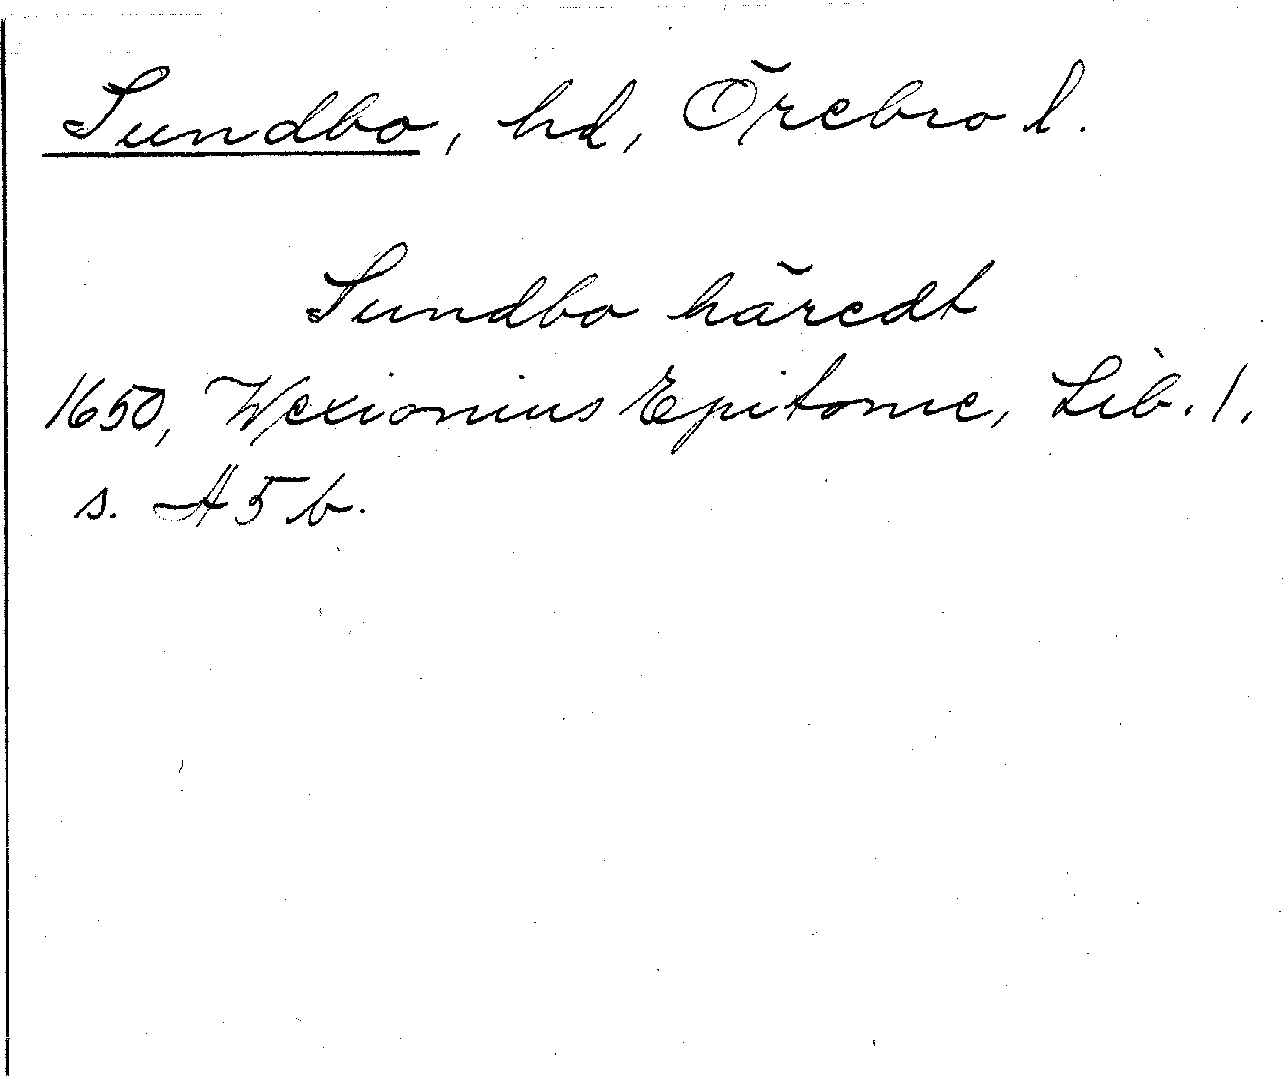 Sundbo, hd, Örebro l.
Sundbo häredt
1650, Wexionius Epitome, Lib. 1.
s. A 5 b.